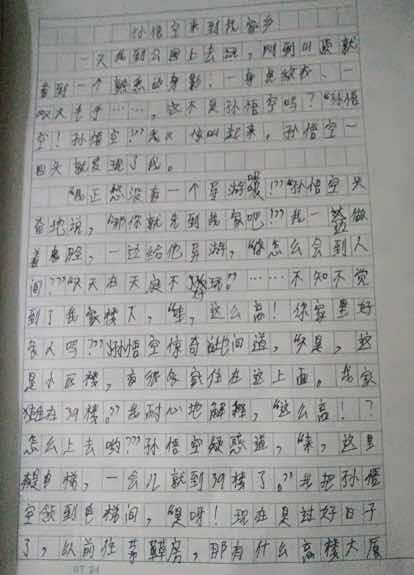 孙悟空来到我家乡
一天我到公园上去玩，刚到山顶就
看到一个熟悉的身影，一身虎纹衣、一
双大毛手……，这不是孙悟空吗？“孙悟
空！孙悟空！”我大 叫起来，孙悟空一
回头就发现了我。
“我正愁没有一个导游哩！”孙悟空兴
奋地说，“那你就先到我家吧！”我一 做
着鬼脸，一边给他导游，“你怎么会到人
间？”“天天在天庭不好玩。”……不知不觉
到了我家楼下，“哇，这么高！你家里好
多人吗？”孙悟空惊奇地问道，“不是，这
是小区楼，有很多家住在这上面。我家
住在39楼。”我耐心地解释，“这么高！？
怎么上去哟？”孙悟空疑惑道，“来，这里
有电梯，一会儿就到39楼了。”我把孙悟
空领到电梯间，“是呀！现在是过好日子
了，以前住茅草房，那有什么高楼大厦
07 21